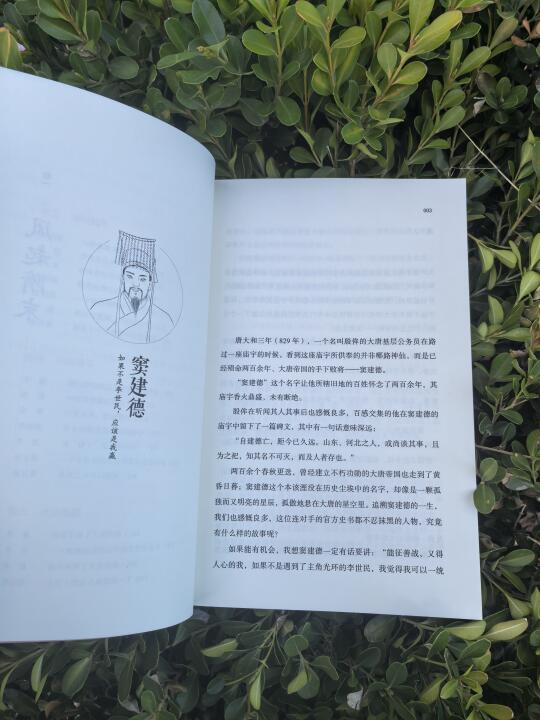 窦建德
如果不是李世民，应该是我赢
003
唐大和三年（829 年），一个名叫殷侔的大唐基层公务员在路
过一座庙宇的时候，看到这座庙宇所供奉的并非哪路神仙，而是已
经殒命两百余年、大唐帝国的手下败将——窦建德。
“窦建德”这个名字让他所辖旧地的百姓怀念了两百余年，其
庙宇香火鼎盛，未有断绝。
殷侔在听闻其人其事后也感慨良多，百感交集的他在窦建德的
庙宇中留下了一篇碑文，其中有一句话意味深远：
“自建德亡，距今已久远。山东、河北之人，或尚谈其事，且
为之祀，知其名不可灭，而及人者存也。”
两百余个春秋更迭，曾经建立不朽功勋的大唐帝国也走到了黄
昏日暮；窦建德这个本该湮没在历史尘埃中的名字，却像是一颗孤
独而又明亮的星辰，孤傲地悬在大唐的星空里，追溯窦建德的一生，
我们也感慨良多，这位连对手的官方史书都不忍抹黑的人物，究竟
有什么样的故事呢？
如果能有机会，我想窦建德一定有话要讲：“能征善战，又得
人心的我，如果不是遇到了主角光环的李世民，我觉得我可以一统